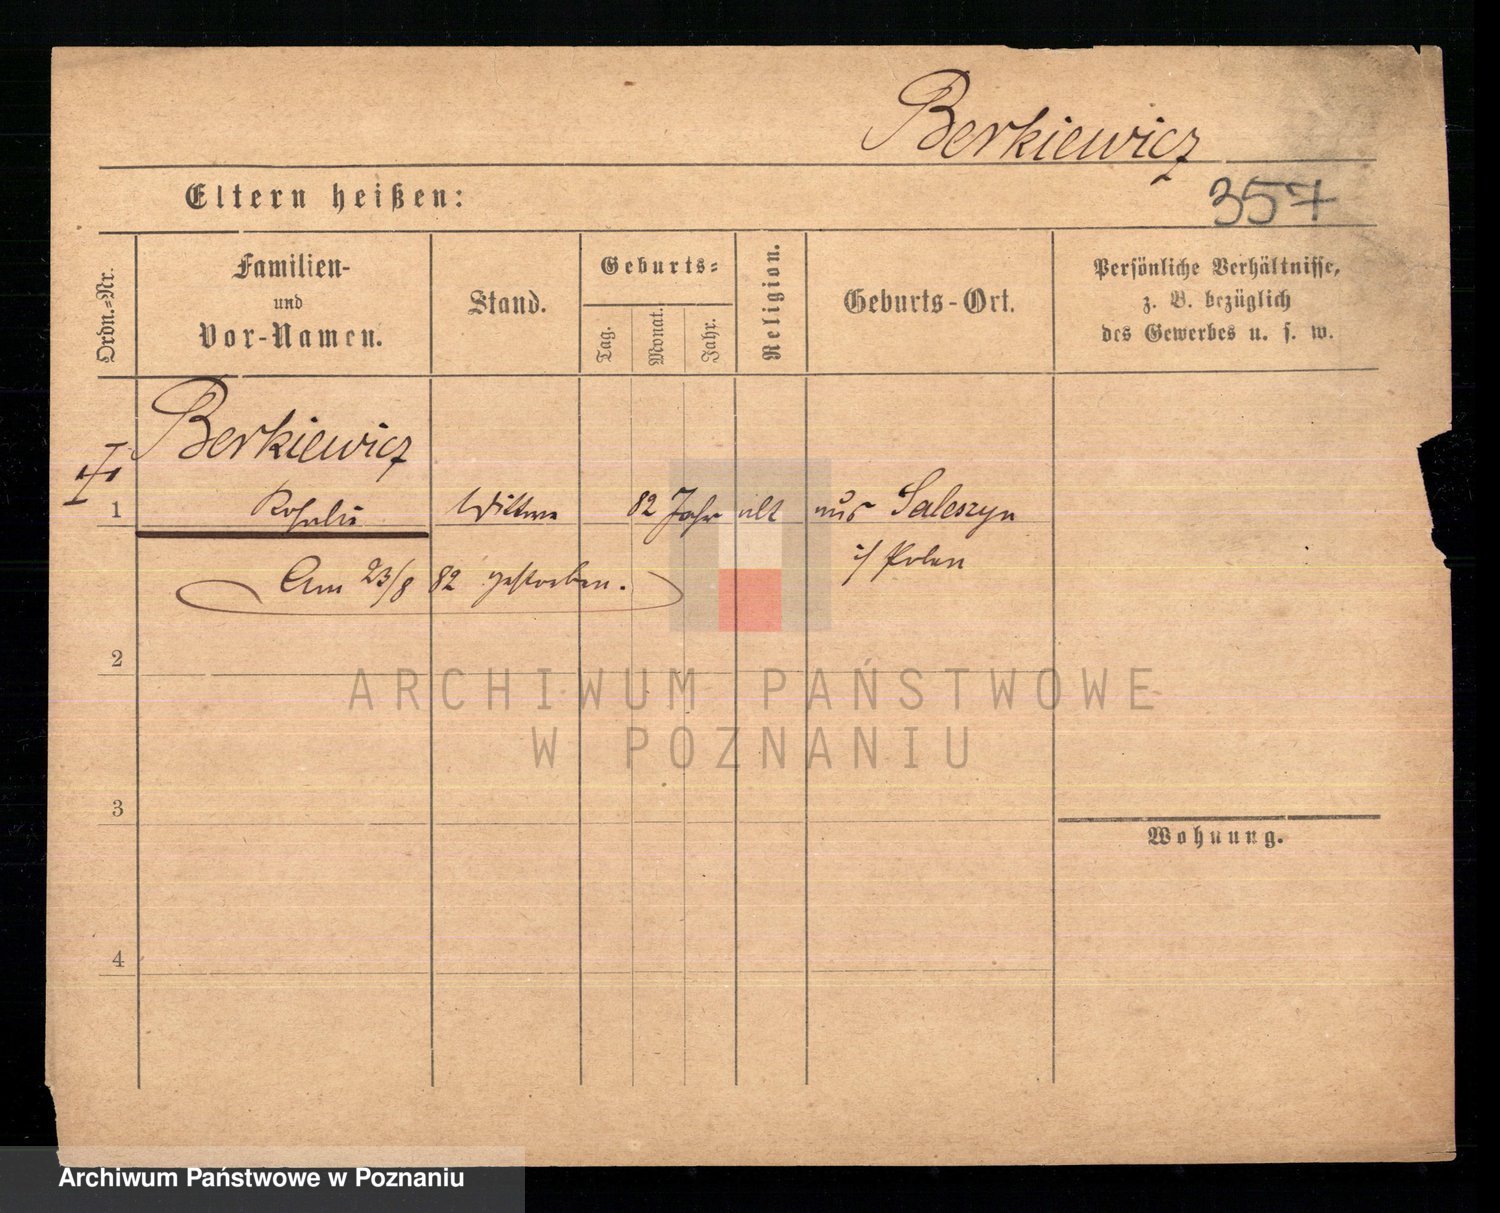 Berkiewicz
Eltern heißen:
357
Ordn.-Nr.
Familien-
und
Vor-Namen.
Stand.
Geburts-
Tag.
Monat.
Jahr.
Religion.
Geburts-Ort.
Persönliche Verhältnisse,
z. B. bezüglich
des Gewerbes u. s. w.
Berkiewicz
1 Rosalie Wittwe 82 Jahr alt aus Saleszyn
i/ Polen
Am 23/8 82 gestorben.
2
ARCHIWUM PAŃSTWOWE
W POZNANIU
3
Wohnung.
4
Archiwum Państwowe w Poznaniu